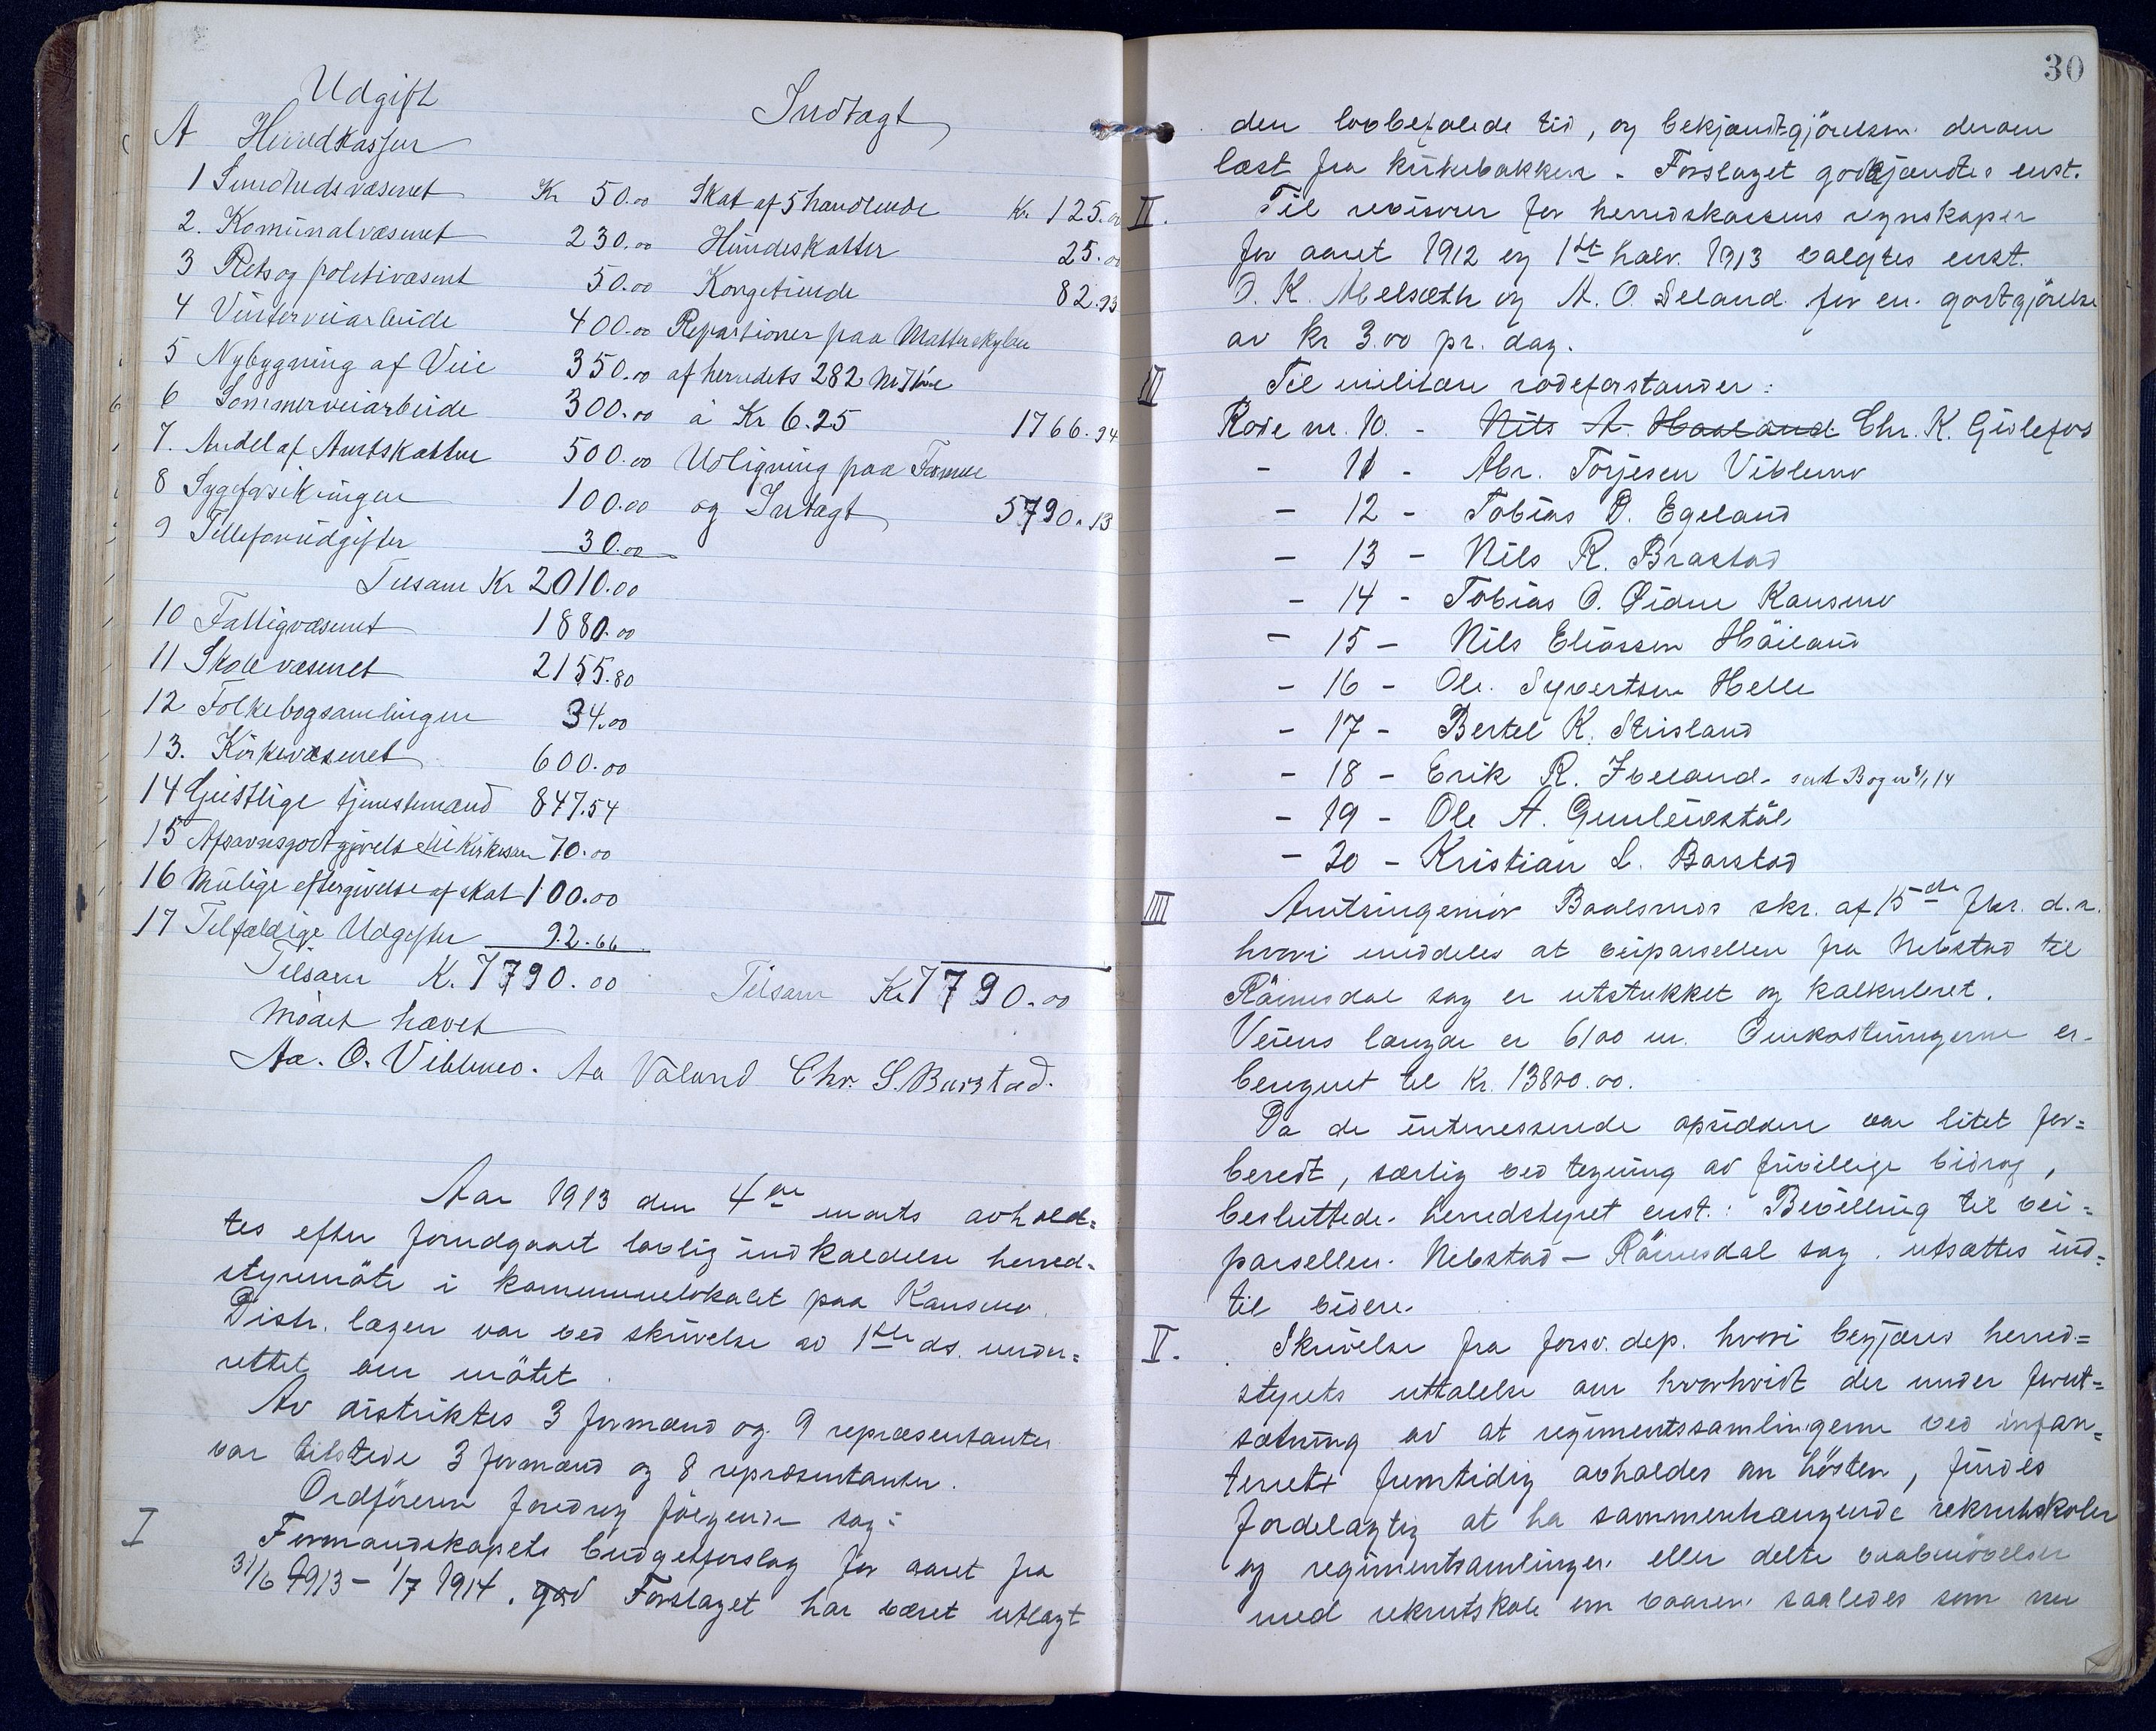 Udgift Indtagt
A Herredkassen
1 Sundhedsvæsenet Kr 50.00 Skat af 5 handlende Kr 125.00
2. Komunalvæsenet 230.00 Hundeskatter 25.00
3 Rets og politivæsent 50.00 Kongetiende 82.93
4 Vinterveiarbeide 400.00 Repartioner paa Matterskylden
5 Nybygning af Veie 350.00 af herredets 282
6 Sommerveiarbeide 300.00 à Kr 6.25 1766.94
7. Andel af Amtskatten 500.00 Udligning paa Formue
8 Sygeforsikringen 100.00 og Intægt 5790.13
9 Telleforudgifter 30.00
Tilsam Kr 2010.00
10 Fattigvæsenet 1880.00
11 Skolevæsenet 2155.80
12 Folkebogsamlingen 34.00
13. Kirkevæsenet 600.00
14 Geistlige tjenestemænd 847.54
15 Afsavnsgodtgjørelse til Kirkesan 70.00
16 Mulige eftergivelse af skat 100.00
17 Tilfældige Udgifter 92.66
Tilsam Kr. 7790.00 Tilsam Kr 7790.00
Mødet hævet
Aa. O. Viblemo. Aa Valand Chr. S. Barstad.
Aar 1913 den 4de marts avhold=
tes efter forudgaaet lovlig indkaldelse herred=
styremöte i kommunelokalet paa Konsmo.
Distr. lægen var ved skrivelse av 1ste ds. under=
rettet om mötet.
Av distriktes 3 formænd og 9 repræsentanter
var tilstede 3 formænd og 8 repræsentanter.
Ordföreren foredrog fölgende sag:
I Formandskapets budgetforslag for aaret fra
31/6 1913 - 1/7 1914. god Forslaget har været utlagt
30
den lovbefalede tid, og bekjendtgjörelsen derom
læst fra kirkebakken. Forslaget godkjendtes enst.
II. Til revisorer for herredskassens regnskaper
for aaret 1912 og 1ste halv. 1913 valgtes enst.
O. K. Abelsæth og A. O. Seland for en godtgjörelse
av kr 3.00 pr. dag.
III Til militære rodeforstander:
Rode nr. 10. - Nils A. Haaland Chr. K. Gislefos
- 11 - Abr. Torjesen Viblemo
- 12 - Tobias D. Egeland
- 13 - Nils R. Brastad
- 14 - Tobias O. Øidne Konsmo
- 15 - Nils Eliassen Häiland
- 16 - Ole Syvertsen Helle
- 17 - Bertel K. Strisland
- 18 - Erik R. Ibeland. sent Bogen 8/1 14
- 19 - Ole A. Gunleiksstöl
- 20 - Kristian L. Barstad
IIII Amtsingeniör Baalsruds skr. af 15de fbr. d.a.
hvori meddeles at veiparsellen fra Nebstad til
Röinesdal sag er utstukket og kalkuleret.
Veiens længde er 6100 m. Omkostningerne er
beregnet til Kr. 13800.00.
Da de interesserede opsiddere var litet for=
beredt, særlig ved tegning av frivillige bidrag,
besluttede herredstyret enst.: Bevilling til vei=
parsellen Nebstad - Röinesdal sag utsættes ind=
til videre.
V. Skrivelse fra forsv. dep. hvori begjæres herred=
styrets uttalelse om hvorhvidt der under forut=
sætning av at regimentssamlingerne ved infan=
teriet fremtidig avholdes om hösten, findes
fordelagtig at ha sammenhængende rekrutskoler
og regimentsamlinger eller delte vaabenövelser
med rekrutskole om vaaren saaledes som nu